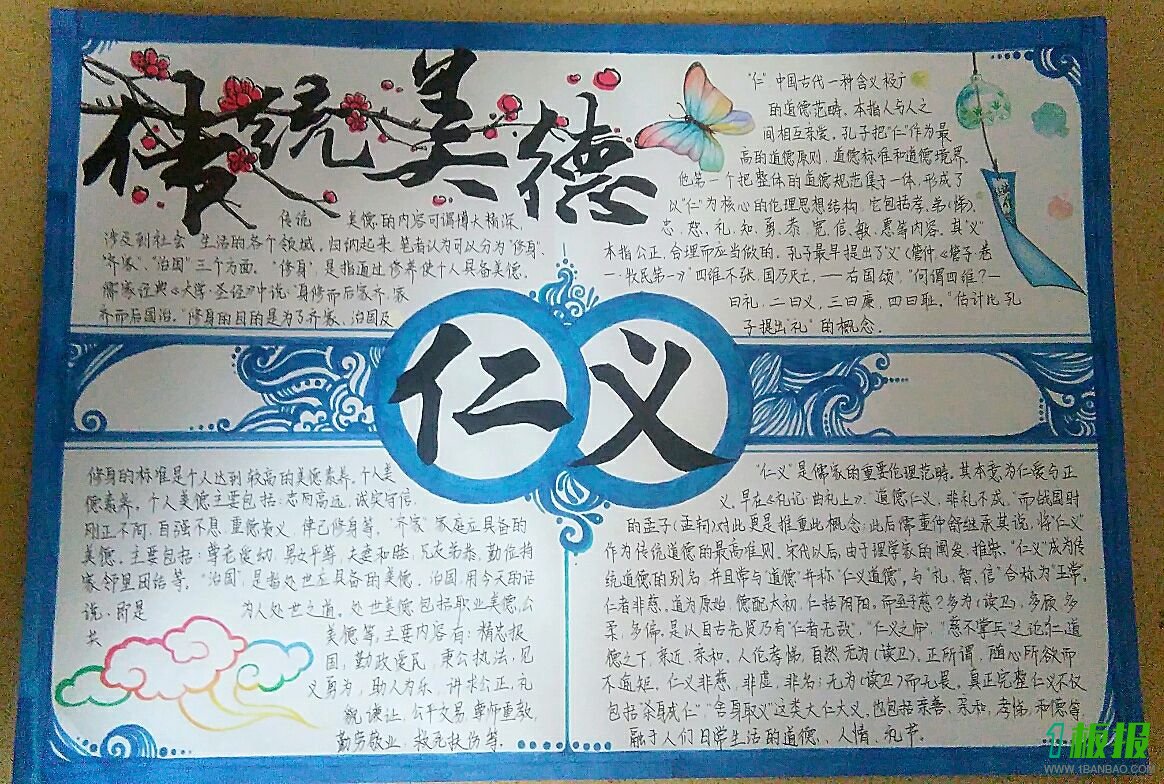 传统美德
传统 美德的内容可谓博大精深,
涉及到社会 生活的各个领域,归纳起来,笔者认为可以分为“修身”、
“齐家”、“治国”三个方面。“修身”,是指通过修养使个人具备美德。
儒家经典《大学·圣经》中说:“身修而后家齐,家
齐而后国治。”修身的目的是为了齐家、治国及
“仁”中国古代一种含义极广
的道德范畴。本指人与人之
间相互亲爱。孔子把“仁”作为最
高的道德原则、道德标准和道德境界。
他第一个把整体的道德规范集于一体,形成了
以“仁”为核心的伦理思想结构,它包括孝、弟(悌)、
忠、恕、礼、知、勇、恭、宽、信、敏、惠等内容。其“义”
本指公正、合理而应当做的。孔子最早提出了“义”(管仲《管子·卷
一·牧民第一》“四维不张,国乃灭亡。——右国颂”,“何谓四维?一
曰礼,二曰义,三曰廉,四曰耻。”估计比孔
子提出“礼”的概念。
仁义
修身的标准是个人达到较高的美德素养。个人美
德素养。个人美德主要包括:志向高远,诚实守信,
刚正不阿,自强不息,重德贵义,律己修身等。“齐家”家庭应具备的
美德。主要包括:尊老爱幼,男女平等,夫妻和睦,兄友弟恭,勤俭持
家,邻里团结等。“治国”,是指处世应具备的美德。治国,用今天的话
说,即是 为人处世之道。处世美德包括职业美德,公
共 美德等,主要内容有:精忠报
国,勤政爱民,秉公执法,见
义勇为,助人为乐,讲求公正,礼
貌谦让,公平交易,尊师重教,
勤劳敬业,救死扶伤等。
“仁义”是儒家的重要伦理范畴。其本意为仁爱与正
义。早在《礼记·曲礼上》:“道德仁义,非礼不成。”而战国时
的孟子(孟轲)对此更是推重此概念;此后儒董仲舒继承其说,将“仁义”
作为传统道德的最高准则。宋代以后,由于理学家的阐发、推崇,“仁义”成为传
统道德的别名,并且常与“道德”并称“仁义道德”。与“礼、智、信”合称为“五常”。
仁者非慈。道为原始,德配太初,仁括阴阳。而至于慈?多为(读卫),多顾,多
柔,多偏。是以自古先贤乃有“仁者无敌”,“仁义之师”,“慈不掌兵”之论,仁道
德之下,亲近,亲和,人伦孝悌,自然无为(读卫)。正所谓,随心所欲而
不逾矩。仁义非慈,非虚,非名;无为(读卫)而无畏。真正完整仁义不仅
包括“杀身成仁”“舍身取义”这类大仁大义,也包括亲善、亲和,孝悌,和德等,
融于人们日常生活的道德、人情、礼节。
1板报
WWW.1BANBAO.COM